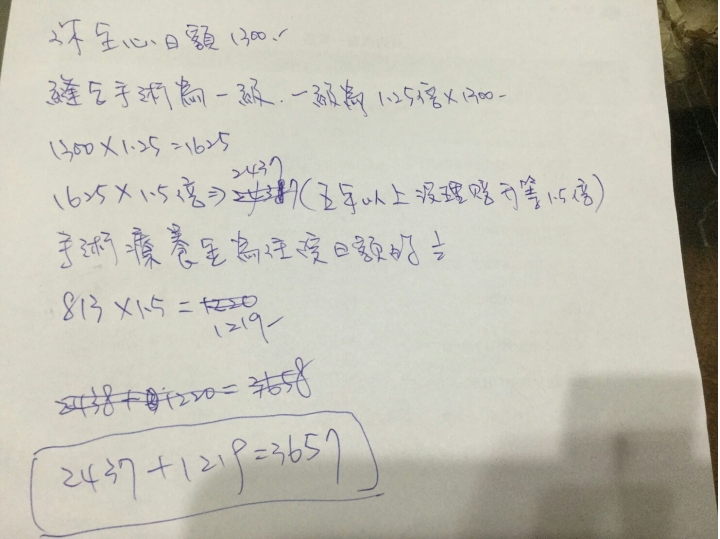 全心日額1300.-
縫合手術為一級.一級為1.25倍×1300-
1300×1.25=1625
2437
1625×1.5倍⇒ (五年以上沒理賠可等1.5倍)
手術療養金為住院日額的½
813×1.5=1220
1219-
2438+1220=3658
2437+1219=3657